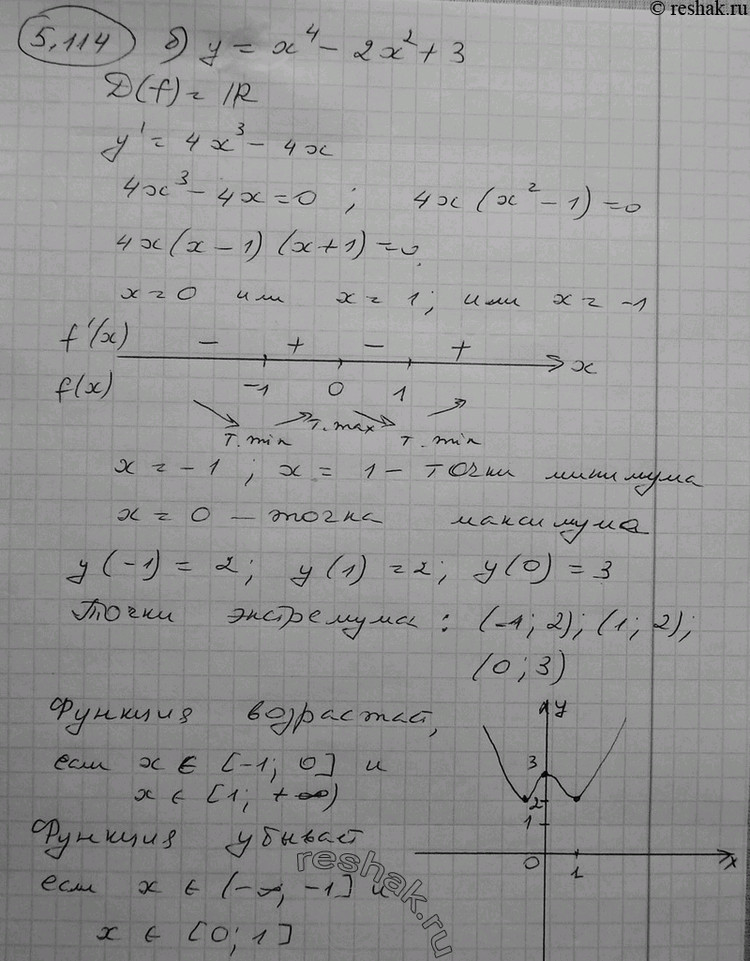 © reshak.ru
5.114 б) y = x⁴ - 2x² + 3
D(f) = ℝ
y' = 4x³ - 4x
4x³ - 4x = 0 ; 4x (x² - 1) = 0
4x(x - 1)(x + 1) = 0
x = 0 или x = 1; или x = -1
f'(x) - + - +
x
f(x) -1 0 1
т. min т. max т. min
x = -1 ; x = 1 - точки минимума
x = 0 - точка максимума
y(-1) = 2; y(1) = 2; y(0) = 3
Точки экстремума : (-1; 2); (1; 2);
(0; 3)
Функция возрастает,
если x ∈ [-1; 0] и
x ∈ [1; +∞)
Функция убывает
если x ∈ (-∞; -1] и
x ∈ [0; 1]
y
3
2
1
0 1 x
reshak.ru